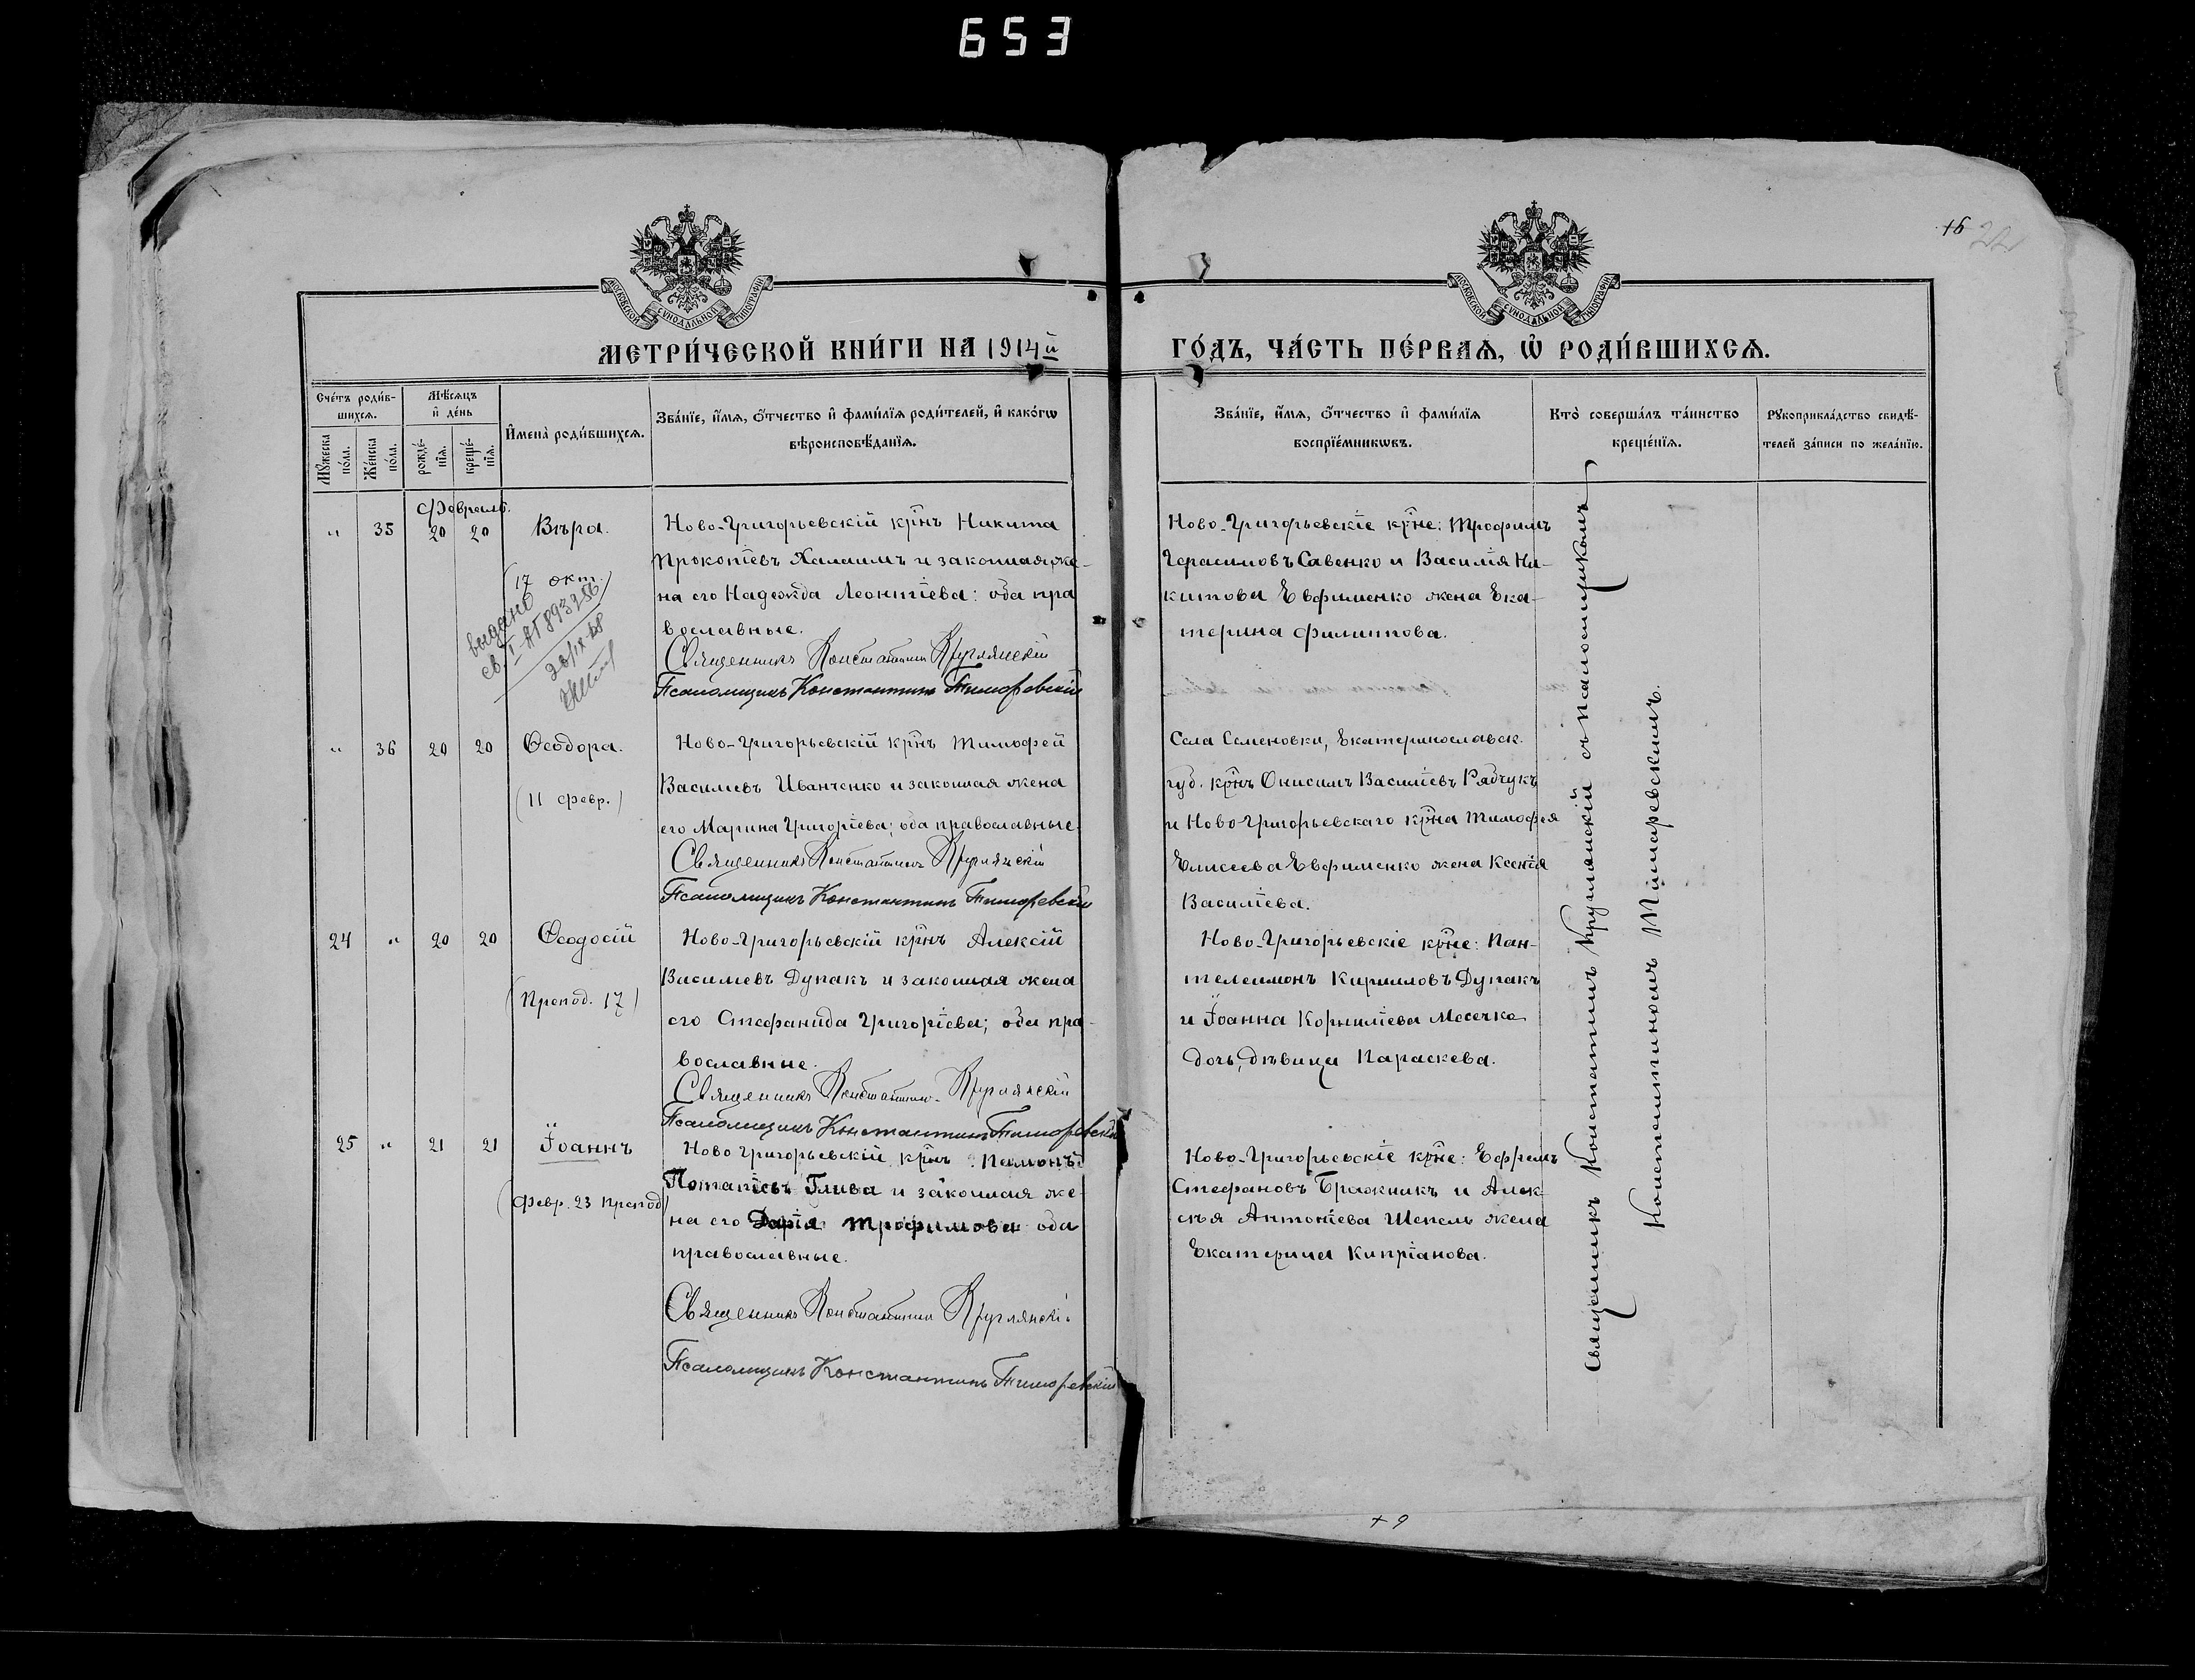 653
16 22
МОСКОВСКОЙ СУНОДАЛЬНОЙ ТИПОГРАФІИ
МОСКОВСКОЙ СУНОДАЛЬНОЙ ТИПОГРАФІИ
МЕТРИ́ЧЕСКОЙ КНИ́ГИ НА 1914й
ГО́ДЪ, ЧА́СТЬ ПЕ́РВАѦ, Ѡ҆ РОДИ́ВШИХСѦ.
Сче́тъ роди́в-
шихсѧ.
Мѣ́сѧцъ
и҆ де́нь
Мꙋ́жеска
по́ла.
Же́нска
по́ла.
рожде́-
нїѧ.
креще́-
нїѧ.
И҆мена̀ роди́вшихсѧ.
Зва́нїе, и҆́мѧ, ѻ҆́тчество и҆ фами́лїѧ роди́телей, и҆ како́гѡ
вѣроисповѣ́данїѧ.
Зва́нїе, и҆́мѧ, ѻ҆́тчество и҆ фами́лїѧ
воспрїе́мникѡвъ.
Кто̀ соверша́лъ та́инство
креще́нїѧ.
Рꙋкоприкла́дство свидѣ́-
телей за́писи по жела́нїю.
Февраль.
" 35 20 20 Вѣра.
(17 окт.)
выдано
св. I-АГ 893256
28/IX-48
Ново-Григорьевскій крнъ Никита
Прокопіевъ Халаимъ и законная же-
на его Надежда Леонтіева: оба пра
вославные.
Священникъ Константинъ Круглянскій
Псаломщикъ Константинъ Тиморевскій
Ново-Григорьевскіе крне: Трофимъ
Герасимовъ Савенко и Василія Ни-
китова Евфименко жена Ека-
терина Филиппова.
" 36 20 20 Ѳеодора.
(11 февр.)
Ново-Григорьевскій крнъ Тимофей
Васильевъ Иванченко и законная жена
его Марина Григоріева; оба православные.
Священникъ Константинъ Круглянскій
Псаломщикъ Константинъ Тиморевскій
Села Семеновки, Екатеринославск.
губ. крнъ Онисимъ Василіевъ Рябчукъ
и Ново-Григорьевскаго крна Тимофея
Елисеева Евфименко жена Ксенія
Василіева.
24 " 20 20 Ѳеодосій
(Препод. 17)
Ново-Григорьевскій крнъ Алексій
Васильевъ Дупакъ и законная жена
его Стефанида Григоріева; оба пра-
вославные.
Священникъ Константинъ Круглянскій
Псаломщикъ Константинъ Тиморевскій
Ново-Григорьевскіе крне: Пан-
телеимонъ Кирилловъ Дупакъ
и Іоанна Корниліева Мосечко
дочь, дѣвица Параскева.
25 " 21 21 Іоаннъ
(Февр. 23 Препод)
Ново Григорьевскій крнъ
Потапіевъ Глива и законная же-
на его Дарія Трофимова оба
православные.
Священникъ Константинъ Круглянскій
Псаломщикъ Константинъ Тиморевскій
Ново-Григорьевскіе крне: Ефремъ
Стефановъ Бражникъ и Алек-
сѣя Антоніева Шепель жена
Екатерина Кипріанова.
Священникъ Константинъ Круглянскій съ псаломщикомъ
Константиномъ Тиморевскимъ.
+ 9